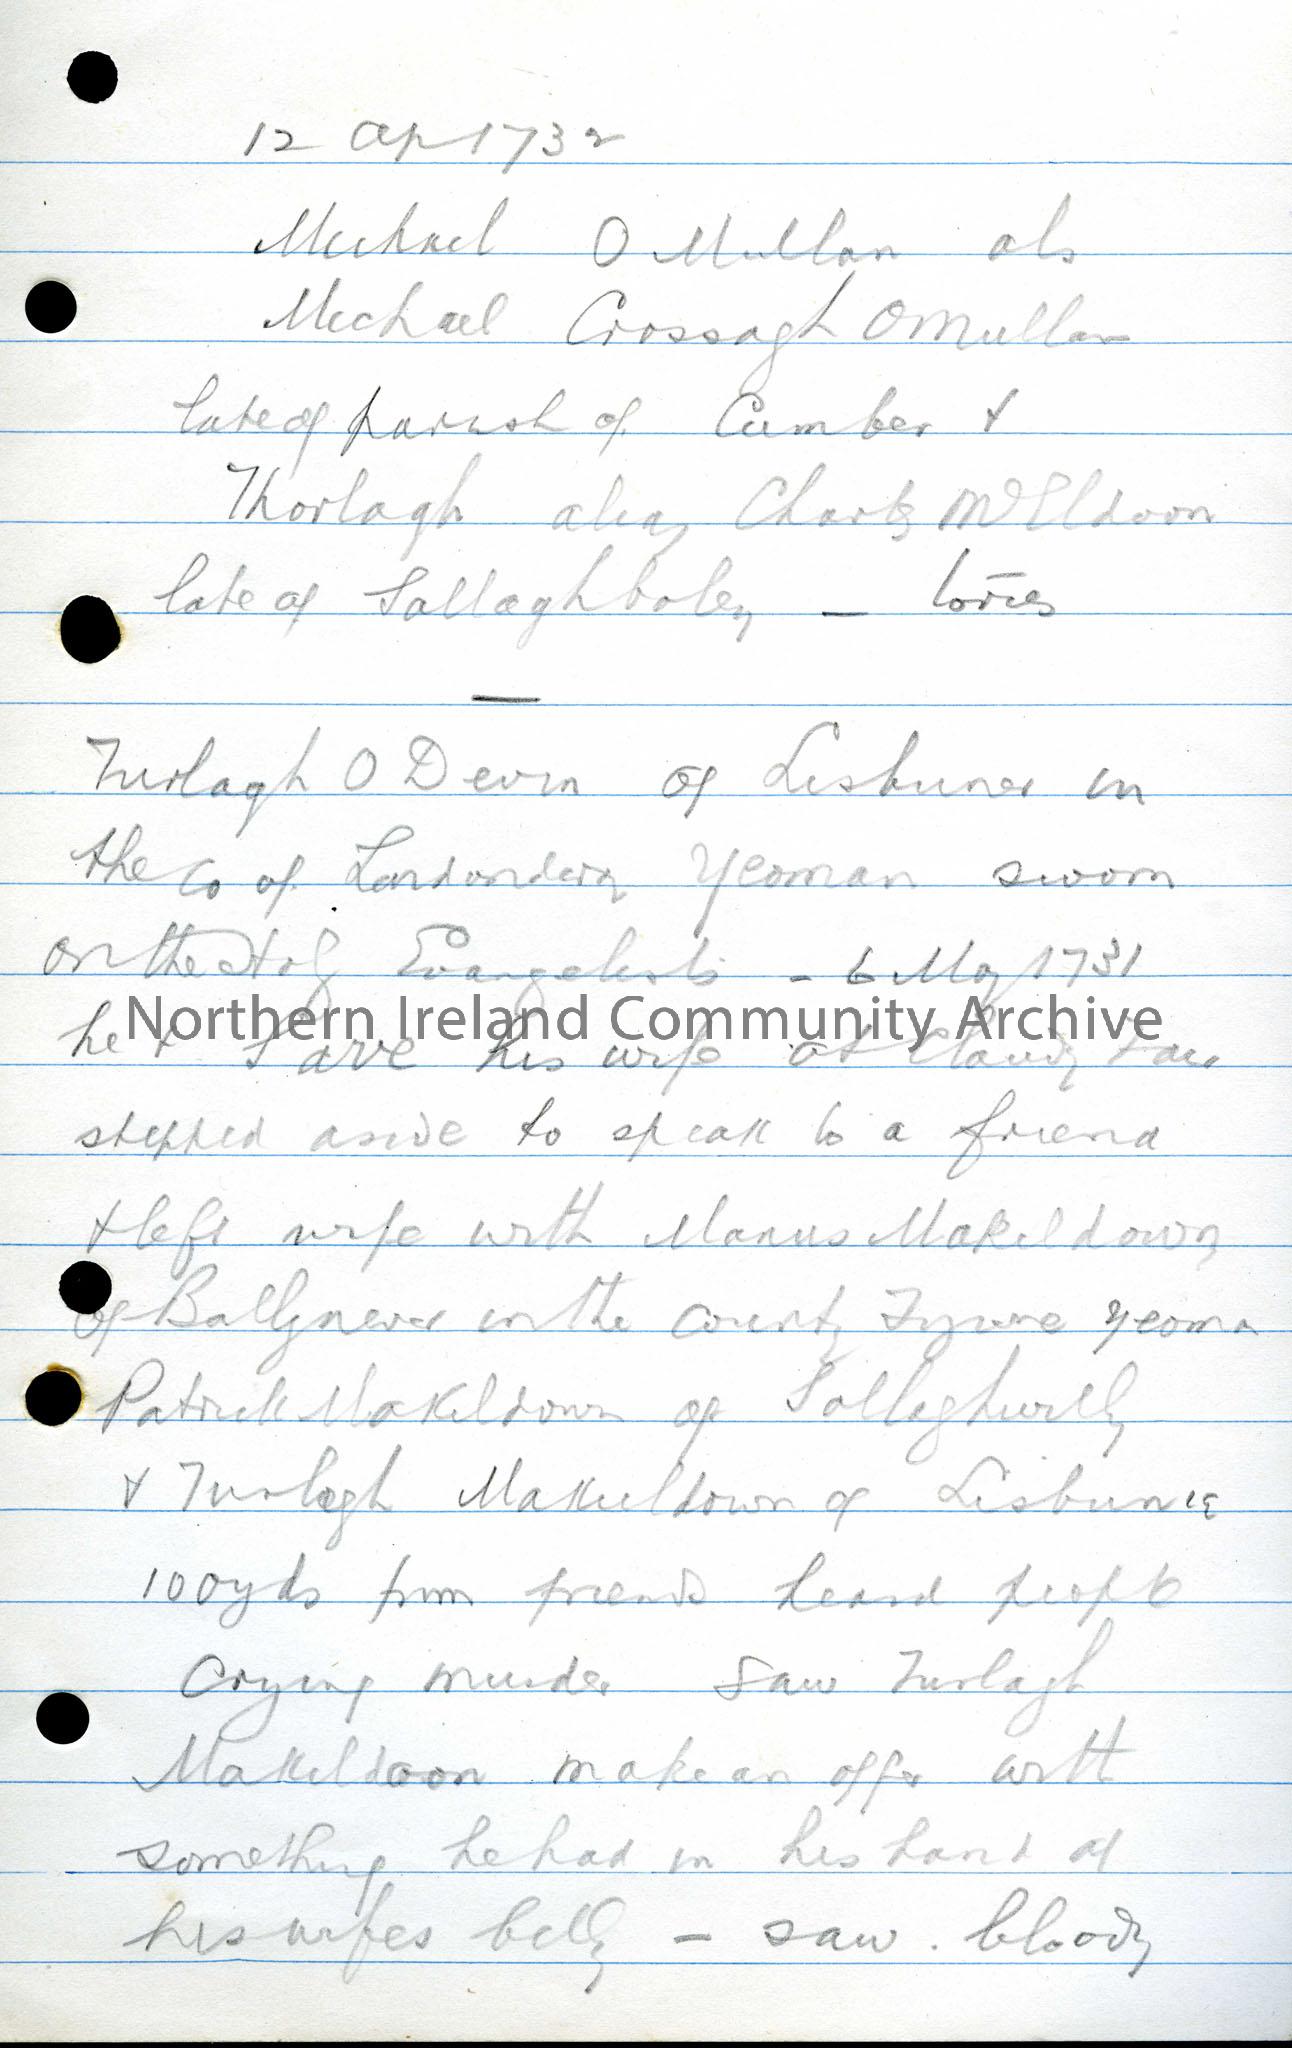 12 Ap 1732
Michael O Mullan als
Michael Crossagh O Mullan
late of parish of Cumber &
Thorlagh alias Charles McEldoon
late of Sallaghboley — tories
—
Turlagh O Devin of Lisbuner in
the Co of Londonderry Yeoman sworn
on the Holy Evangelists - 6 May 1731
Northern Ireland Community Archive
he & Sarve his wife at Claudy
stepped aside to speak to a friend
& left wife with Manus Makeldown
of in the county Tyrone yeoman
Patrick Makeldown of
& Turlagh Makeeldown of Lisbunie
100 yds from friends heard people
crying murder saw Turlagh
Makeldoon make an offer with
something he had in his hand at
his wifes belly — saw . bloody